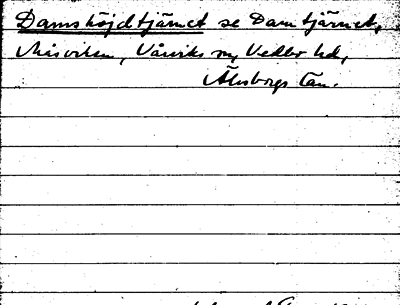 Damshöjdtjärnet se Damtjärnet,
Årsviken, Vårviks sn, Vedbo hd,
Älvsborgs län.